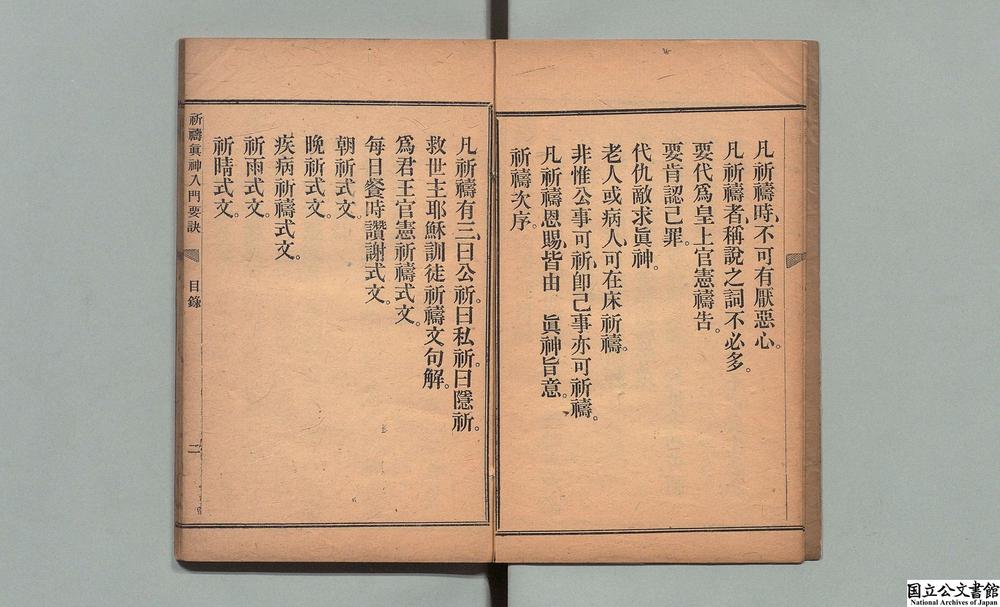 凡祈禱時、不可有厭惡心。
凡祈禱者、稱說之詞不必多。
要代爲皇上官憲禱告。
要肯認己罪。
代仇敵求眞神。
老人或病人、可在床祈禱。
非惟公事可祈、卽己事亦可祈禱。
凡祈禱恩賜、皆由　眞神旨意。
祈禱次序。
凡祈禱有三、曰公祈。曰私祈。曰隱祈。
救世主耶穌訓徒祈禱文句解。
爲君王官憲祈禱式文。
每日餐時讚謝式文。
朝祈式文。
晚祈式文。
疾病祈禱式文。
祈雨式文。
祈晴式文。
祈禱眞神入門要訣　目錄　二
国立公文書館
National Archives of Japan